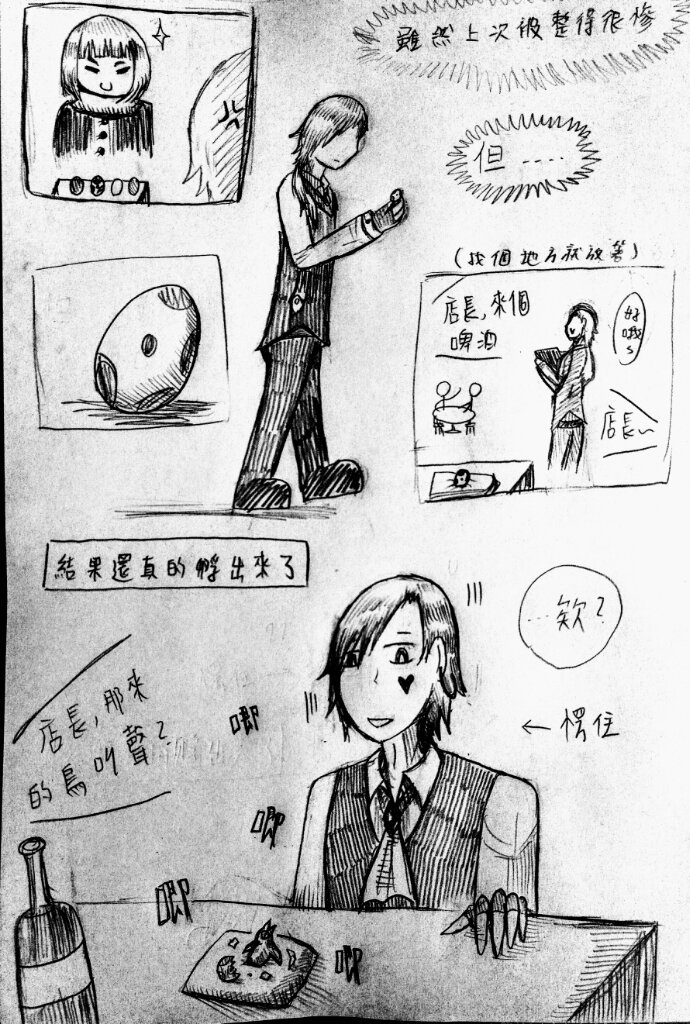 雖然上次被整得很慘
但....
(找個地方就放著)
店長,來個
啤酒
好哦~
店長~
結果還真的孵出來了
....欸?
←愣住
店長,那來
的鳥叫聲?
唧
唧
唧
唧